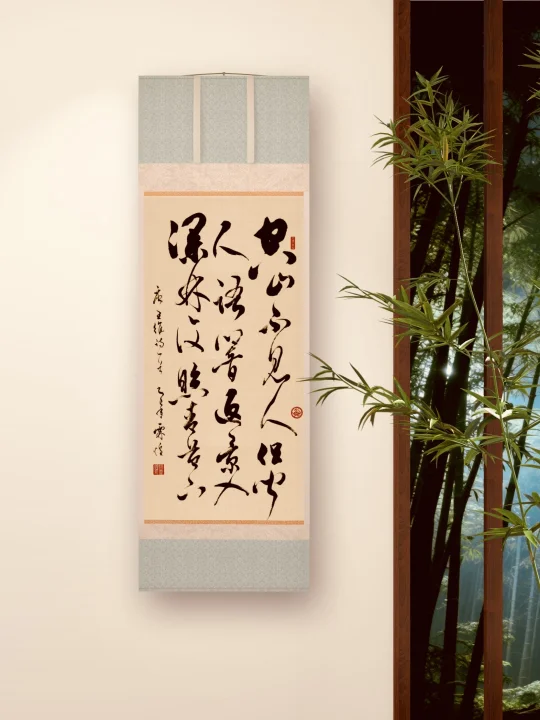 空山不見人但聞
人語響返景入
深林復照青苔上
唐王維詩一首